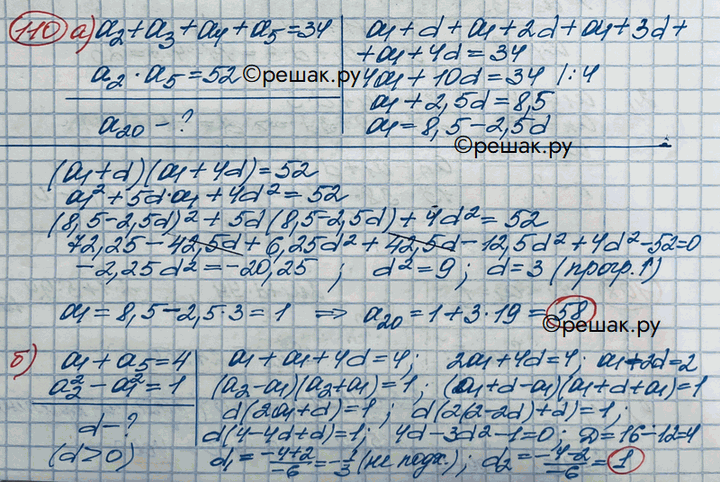 110 а) a₂+a₃+a₄+a₅=34
a₂·a₅=52 ©решак.ру
a₂₀-?
a₁+d+a₁+2d+a₁+3d+
+a₁+4d=34
4a₁+10d=34 |:4
a₁+2,5d=8,5
a₁=8,5-2,5d
©решак.ру
(a₁+d)(a₁+4d)=52
a₁²+5d·a₁+4d²=52
(8,5-2,5d)²+5d(8,5-2,5d)+4d²=52
72,25-42,5d+6,25d²+42,5d-12,5d²+4d²-52=0
-2,25d²=-20,25 ; d²=9; d=3 (прогр.↑)
a₁=8,5-2,5·3=1 ⇒ a₂₀=1+3·19=58
©решак.ру
б) a₁+a₅=4
a₂²-a₁²=1
d-?
(d>0)
a₁+a₁+4d=4; 2a₁+4d=4; a₁+2d=2
(a₂-a₁)(a₂+a₁)=1; (a₁+d-a₁)(a₁+d+a₁)=1
d(2a₁+d)=1; d(2(2-2d)+d)=1;
d(4-4d+d)=1; 4d-3d²-1=0; D=16-12=4
d₁=(-4+2)/-6=-1/3 (не подх.); d₂=(-4-2)/-6=1